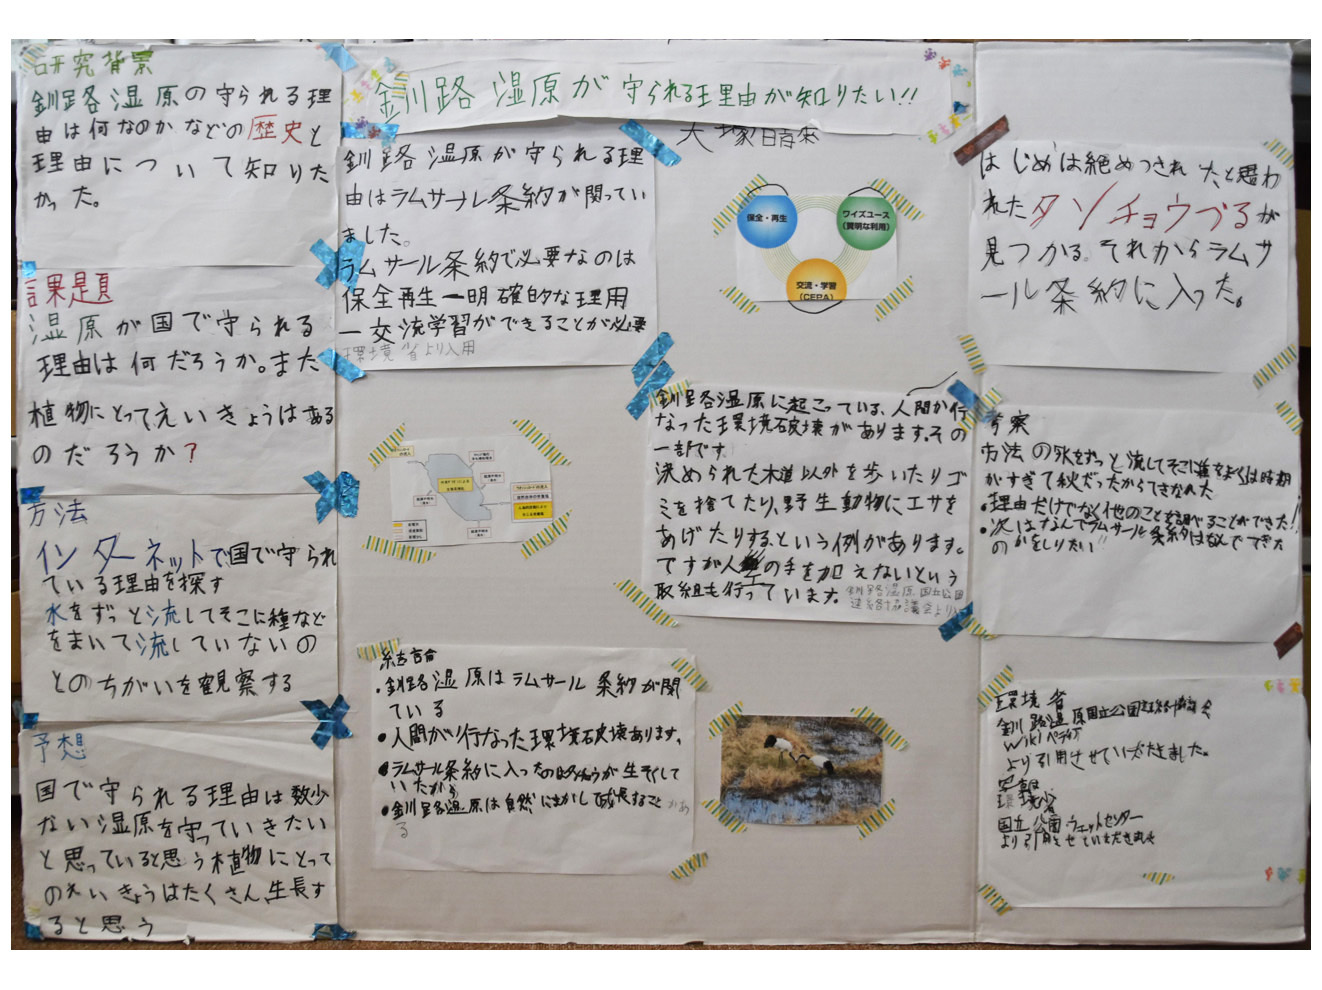 釧路湿原が守られる理由が知りたい!!
大塚晴来
研究背景
釧路湿原の守られる理
由は何なのかなどの歴史と
理由について知りた
かった。
課題
湿原が国で守られる
理由は何だろうか。また
植物にとってえいきょうはある
のだろうか?
方法
インターネットで国で守られ
ている理由を探す
水をずっと流してそこに種など
をまいて流していないの
とのちがいを観察する
予想
国で守られる理由は数少
ない湿原を守っていきたい
と思っていると思う植物にとって
のえいきょうはたくさん生長す
ると思う
釧路湿原が守られる理
由はラムサール条約が関ってい
ました。
ラムサール条約で必要なのは
保全再生ー明確的な理用
ー交流学習ができることが必要
環境省より入用
保全・再生
ワイズユース
(賢明な利用)
交流・学習
(CEPA)
釧路湿原に起こっている、人間が行
なった環境破壊があります。その
一部です
決められた木道以外を歩いたりゴ
ミを捨てたり、野生動物にエサを
あげたりする、という例があります。
ですが人の手を加えないという
取組も行っています。
釧路湿原国立公園
連絡協議会より
結論
・釧路湿原はラムサール条約が関
ている
・人間が行なった環境破壊あります。
・ラムサール条約に入ったのは
いたから
・釧路湿原は自然にまかして成長することがあ
る
はじめは絶めつされたと思わ
れたタンチョウづるが
見つかる。それからラムサ
ール条約に入った。
考察
方法の水をずっと流してそこに種をまくは時期
がすぎて秋だったからできなれた
・理由だけでなく他のことを調べることができた!
・次はなんでラムサール条約はなんでできた
のかをしりたい!!
環境省
釧路湿原国立公園連絡協議会
Wikiペディア
より引用させていただきました。
写真は
環境省
国立公園・ウェットセンター
より引用させていただきました